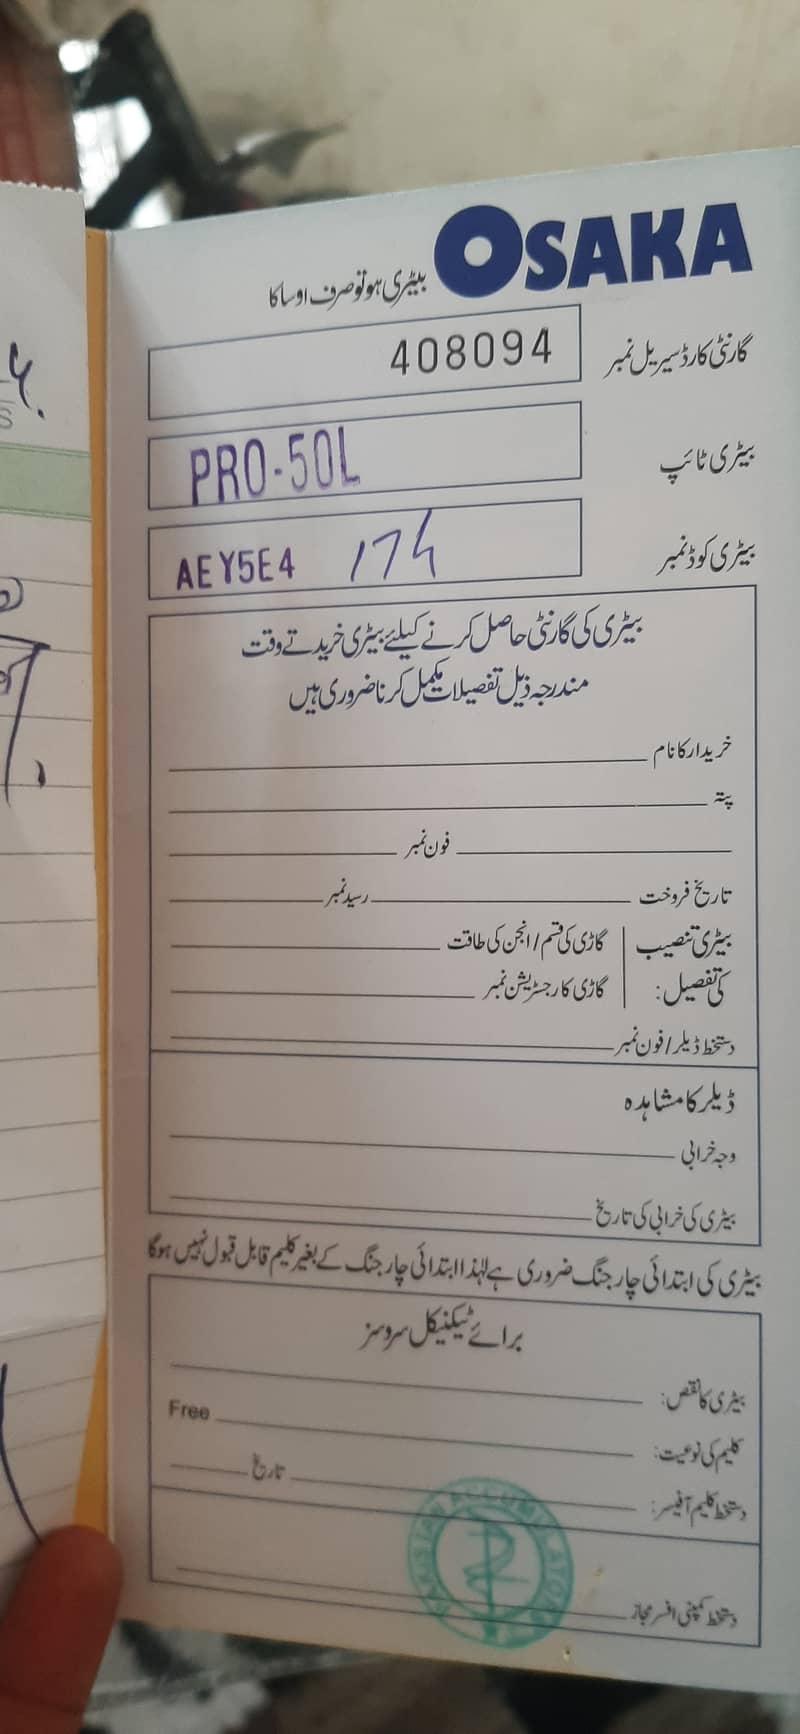 OSAKA
بیٹری ہو تو صرف اوساکا
گارنٹی کارڈ سیریل نمبر 408094
بیٹری ٹائپ PRO-50L
بیٹری کوڈ نمبر AEY5E4
بیٹری کی گارنٹی حاصل کرنے کیلئے بیٹری خریدتے وقت
مندرجہ ذیل تفصیلات مکمل کرنا ضروری ہیں
خریدار کا نام
پتہ
فون نمبر
تاریخ فروخت رسید نمبر
بیٹری تنصیب گاڑی کی قسم / انجن کی طاقت
کی تفصیل: گاڑی کا رجسٹریشن نمبر
دستخط ڈیلر / فون نمبر
ڈیلر کا مشاہدہ
وجہ خرابی
بیٹری کی خرابی کی تاریخ
بیٹری کی ابتدائی چارجنگ ضروری ہے لہٰذا ابتدائی چارجنگ کے بغیر کلیم قابل قبول نہیں ہوگا
برائے ٹیکنیکل سروسز
بیٹری کا نقص:
کلیم کی نوعیت: Free
دستخط کلیم آفیسر: تاریخ
دستخط کمپنی افسر مجاز